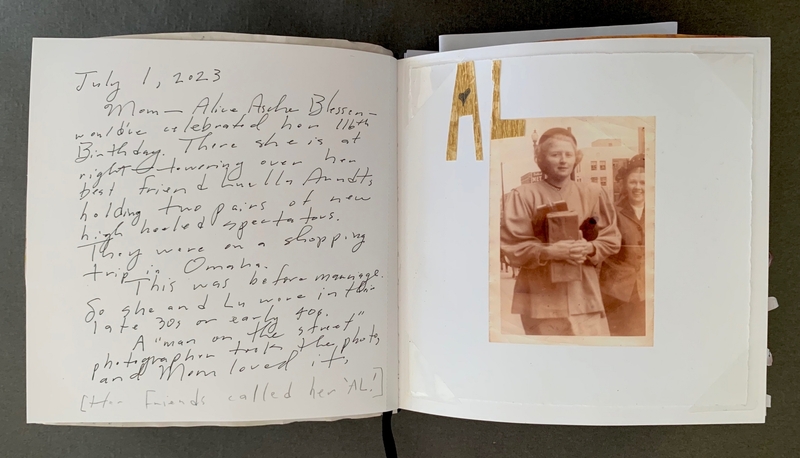 July 1, 2023
Mom — Alice Asche Blessen —
would've celebrated her 116th
Birthday. There she is at
right — towering over her
best friend Luella Arndts
holding two pairs of new
high heeled spectators.
They were on a shopping
trip in Omaha.
This was before marriage.
So she and Lu were in their
late 30s or early 40s.
A "man on the street"
photographer took the photo,
and Mom loved it.
[Her friends called her 'AL!']
AL